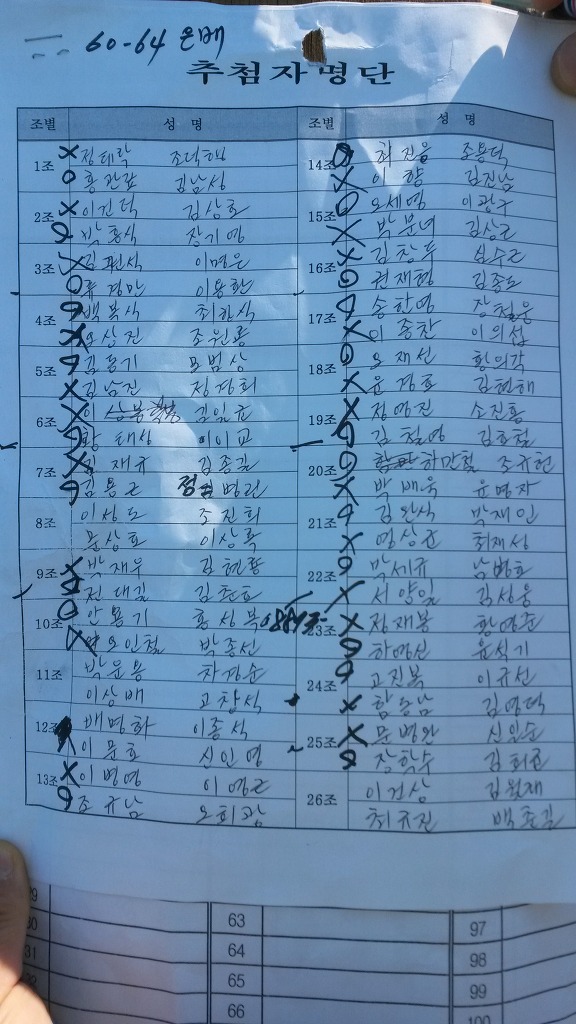 60-64 은배
추첨자명단
조별 성 명 조별 성 명
1조
X 정태락 조덕해
O 홍관표 김남성
2조
X 이건덕 김상호
박홍식 장기영
3조
X 이명은
O 류경만 이용환
4조
백복식 최한식
조원룡
5조
김동기 문범상
X 김남진 정경희
6조
X 이 김일군
황태성 이이교
7조
X 재규 김종길
김용근 정 병란
8조
이성도 조진희
문상호 이상록
9조
X 박재우 김현룡
전대길 김춘호
10조
O 안용기 홍성복
X 오인철 박종선
11조
박윤용 차경순
이상배 고창식
12조
배명화 이종석
이문호 신인영
13조
X 이명영 이영근
조규남 오희광
14조
최진웅 조용덕
X 이향 김진남
15조
오세영 이광수
X 박문녀 김상근
16조
X 김창두
권재형 김종도
17조
송한영 장철웅
X 이종찬 이의섭
18조
오재선 황의각
X 윤경호 김현해
19조
X 정영진 소진흥
김철영 김호철
20조
하만철 조규현
X 박배욱 윤명자
21조
김완식 박재인
X 염상근 최재성
22조
O 박세규 남병호
서양일 김성웅
23조
X 정재봉 황영순
하명신 윤석기
24조
고진복 이규선
X 함승남 김영덕
25조
X 문병완 신일순
장학수 김희준
26조
이건상 김월재
최규진 백춘길
63 97
64 98
65 99
66 100